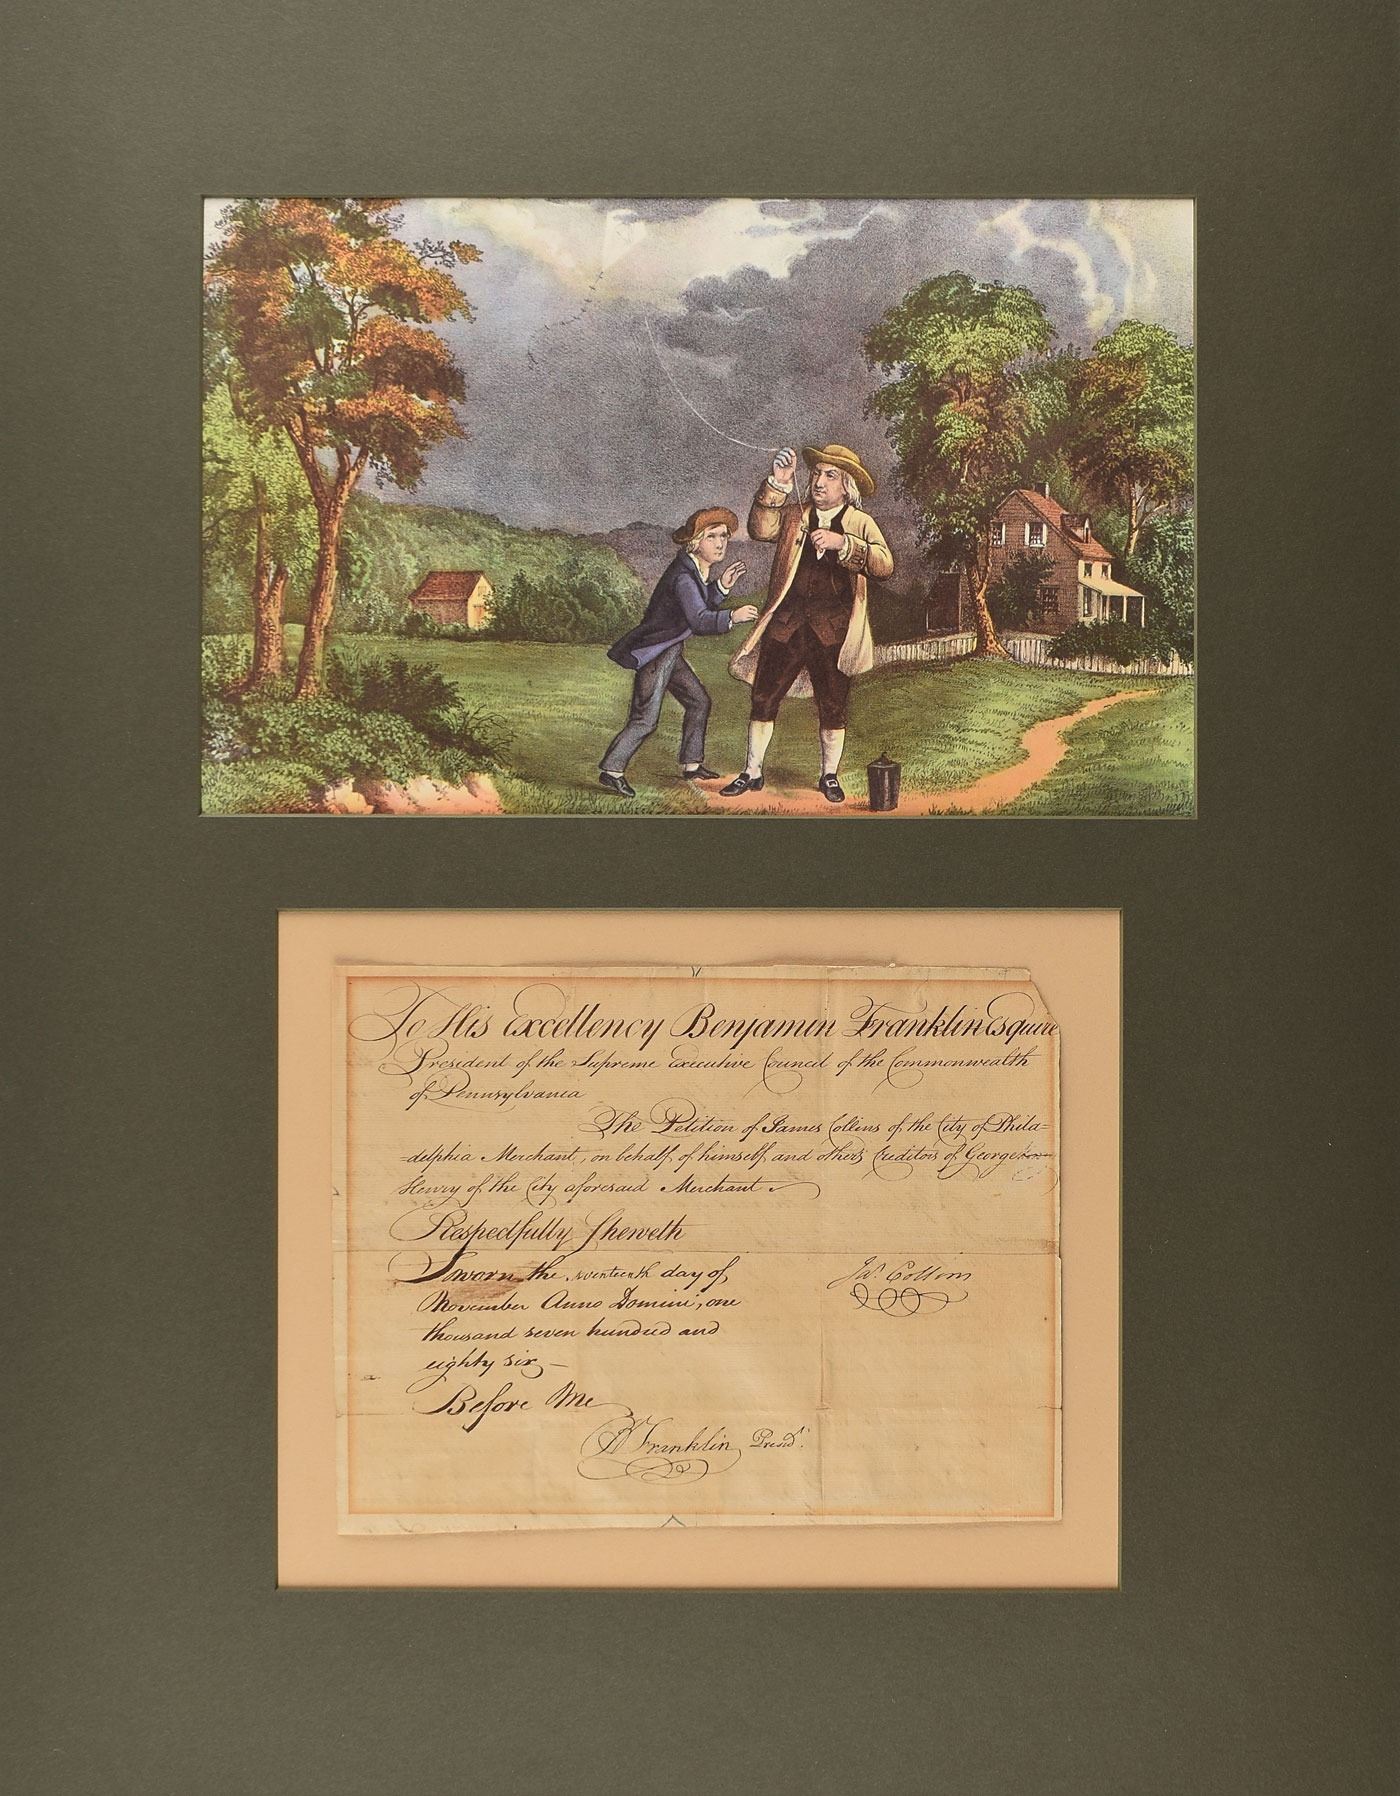 To His Excellency Benjamin Franklin Esquire
President of the Supreme Executive Council of the Commonwealth
of Pennsylvania
The Petition of James Collins of the City of Phila=
=delphia Merchant, on behalf of himself and others Creditors of George
Henry of the City aforesaid Merchant
Respectfully Sheweth
Sworn the seventeenth day of
November Anno Domini, one
thousand seven hundred and
eighty six—
Before Me
Jas. Collins
B Franklin Presidt.